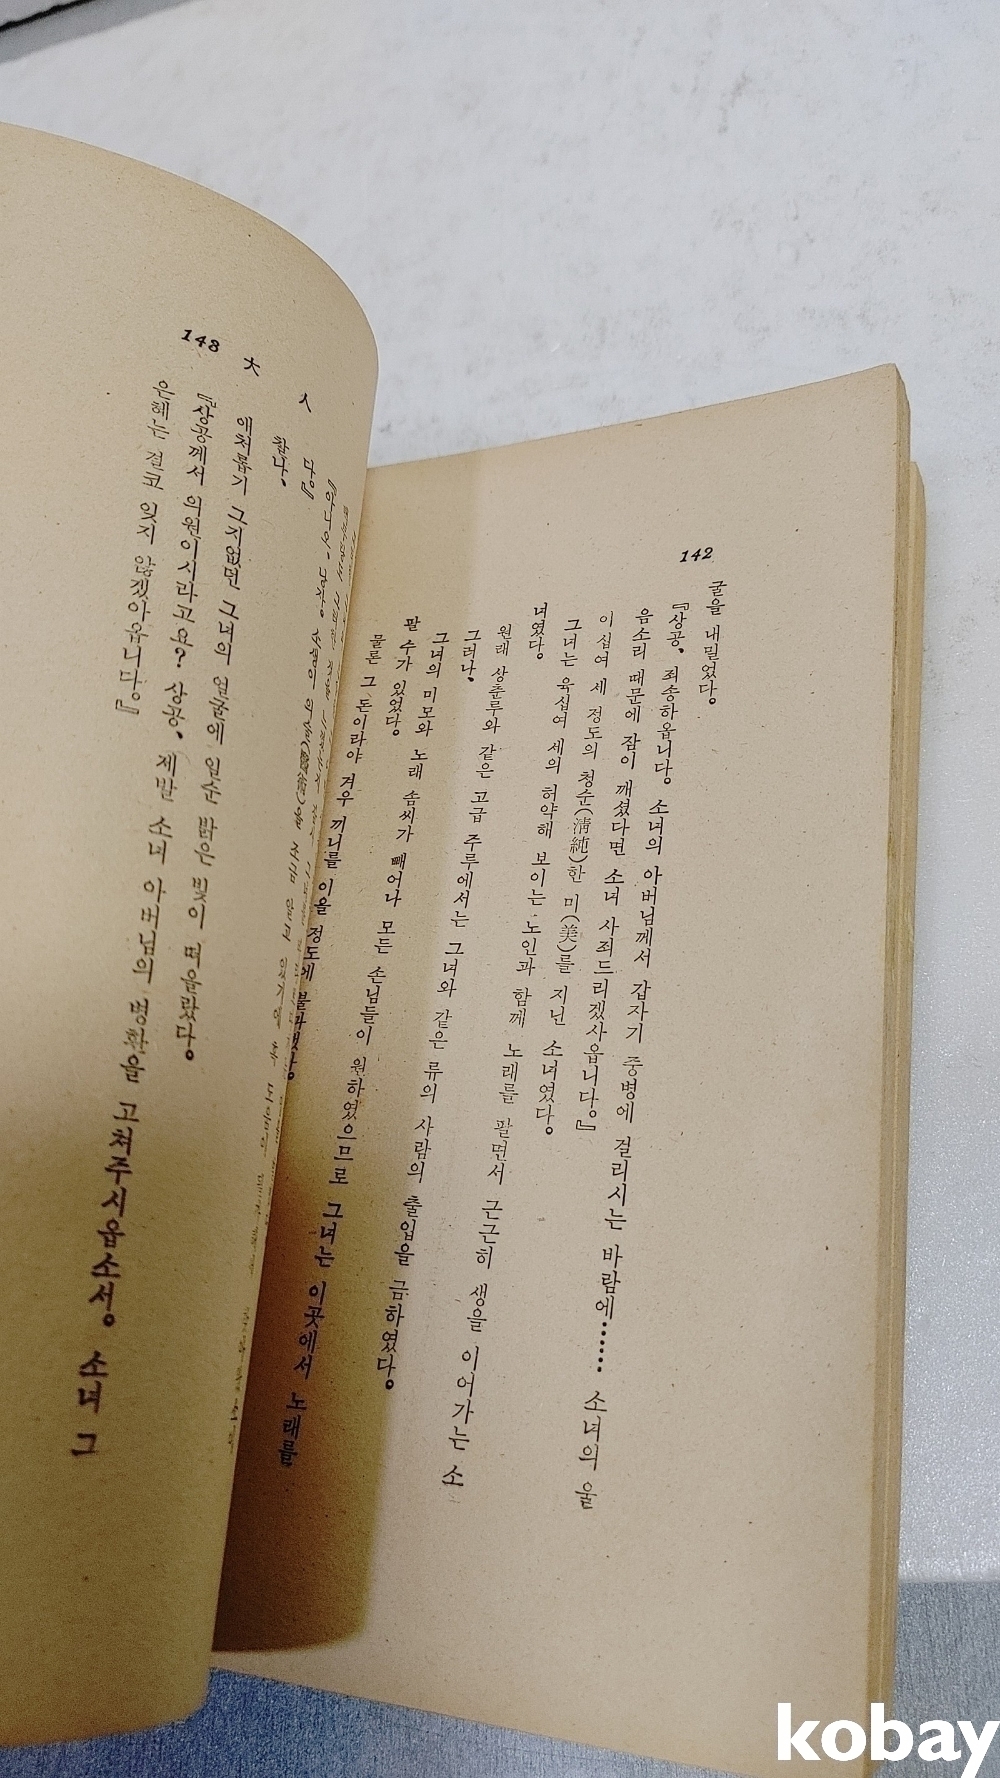 142
굴을 내밀었다.
『상공, 죄송하옵니다. 소녀의 아버님께서 갑자기 중병에 걸리시는 바람에…… 소녀의 울
음소리 때문에 잠이 깨셨다면 소녀 사죄드리겠사옵니다.』
이십여 세 정도의 청순(淸純)한 미(美)를 지닌 소녀였다.
그녀는 육십여 세의 허약해 보이는 노인과 함께 노래를 팔면서 근근히 생을 이어가는 소
녀였다.
원래 상춘루와 같은 고급 주루에서는 그녀와 같은 류의 사람의 출입을 금하였다.
그러나,
그녀의 미모와 노래 솜씨가 빼어나 모든 손님들이 원하였으므로 그녀는 이곳에서 노래를
팔 수가 있었다.
물론 그 돈이라야 겨우 끼니를 이을 정도에 불과했다.
『아니오, 낭자. 소생이 의술(醫術)을 조금 알고 있기에 혹
다.』
찰나,
애처롭기 그지없던 그녀의 얼굴에 일순 밝은 빛이 떠올랐다.
『상공께서 의원이시라고요? 상공, 제발 소녀 아버님의 병환을 고쳐주시옵소서. 소녀 그
은혜는 결코 잊지 않겠아옵니다.』
143 大 人
kobay